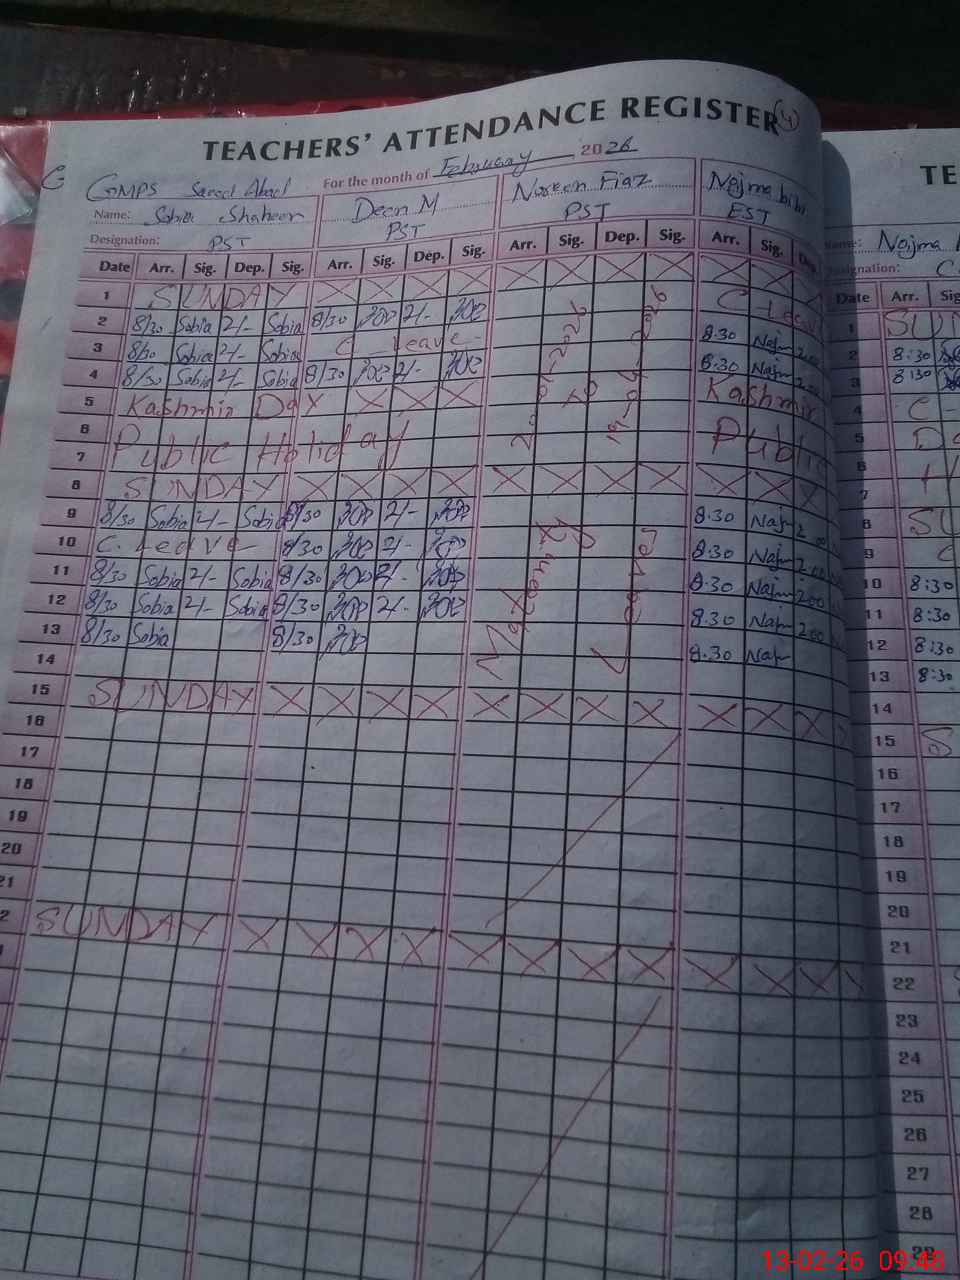 TEACHERS' ATTENDANCE REGISTER 4
GMPS Saeed Abad For the month of February 2026
Name: Sobia Shaheen Deen M Noreen Fiaz Najma bibi
Designation: PST PST PST EST
Date Arr. Sig. Dep. Sig. Arr. Sig. Dep. Sig. Arr. Sig. Dep. Sig. Arr. Sig.
1 SUNDAY X X X X X X X X X X X
2 8/30 Sobia 2/- Sobia 8/30 2/- C-Leave
3 8/30 Sobia 2/- Sobia C Leave 8.30 Najm 2.00
4 8/30 Sobia 2/- Sobia 8/30 2/- 8.30 Najm 2.00
5 Kashmir Day X X X Kashmir
6
7 Public Holiday Public
8 SUNDAY X X X X X X X X X X X
9 8/30 Sobia 2/- Sobia 8/30 2/- 8.30 Najm 2.00
10 C. Leave 8/30 2/- 8.30 Najm 2.00
11 8/30 Sobia 2/- Sobia 8/30 2/- 8.30 Najm 2.00
12 8/30 Sobia 2/- Sobia 8/30 2/- 8.30 Najm 2.00
13 8/30 Sobia 8/30 8.30 Najm
14
15 SUNDAY X X X X X X X X X X X
16
17
18
19
20
21
2 SUNDAY X X X X X X X X X X X X
to
Maternity
Leaves
TE
Name: Najma
Designation:
Date Arr. Sig
1 SUN
2 8:30
3 8:30
4 C-
5
6 H
7
8 SU
9 C
10 8:30
11 8:30
12 8:30
13 8:30
14
15 S
16
17
18
19
20
21
22
23
24
25
26
27
28
29
13-02-26 09:48